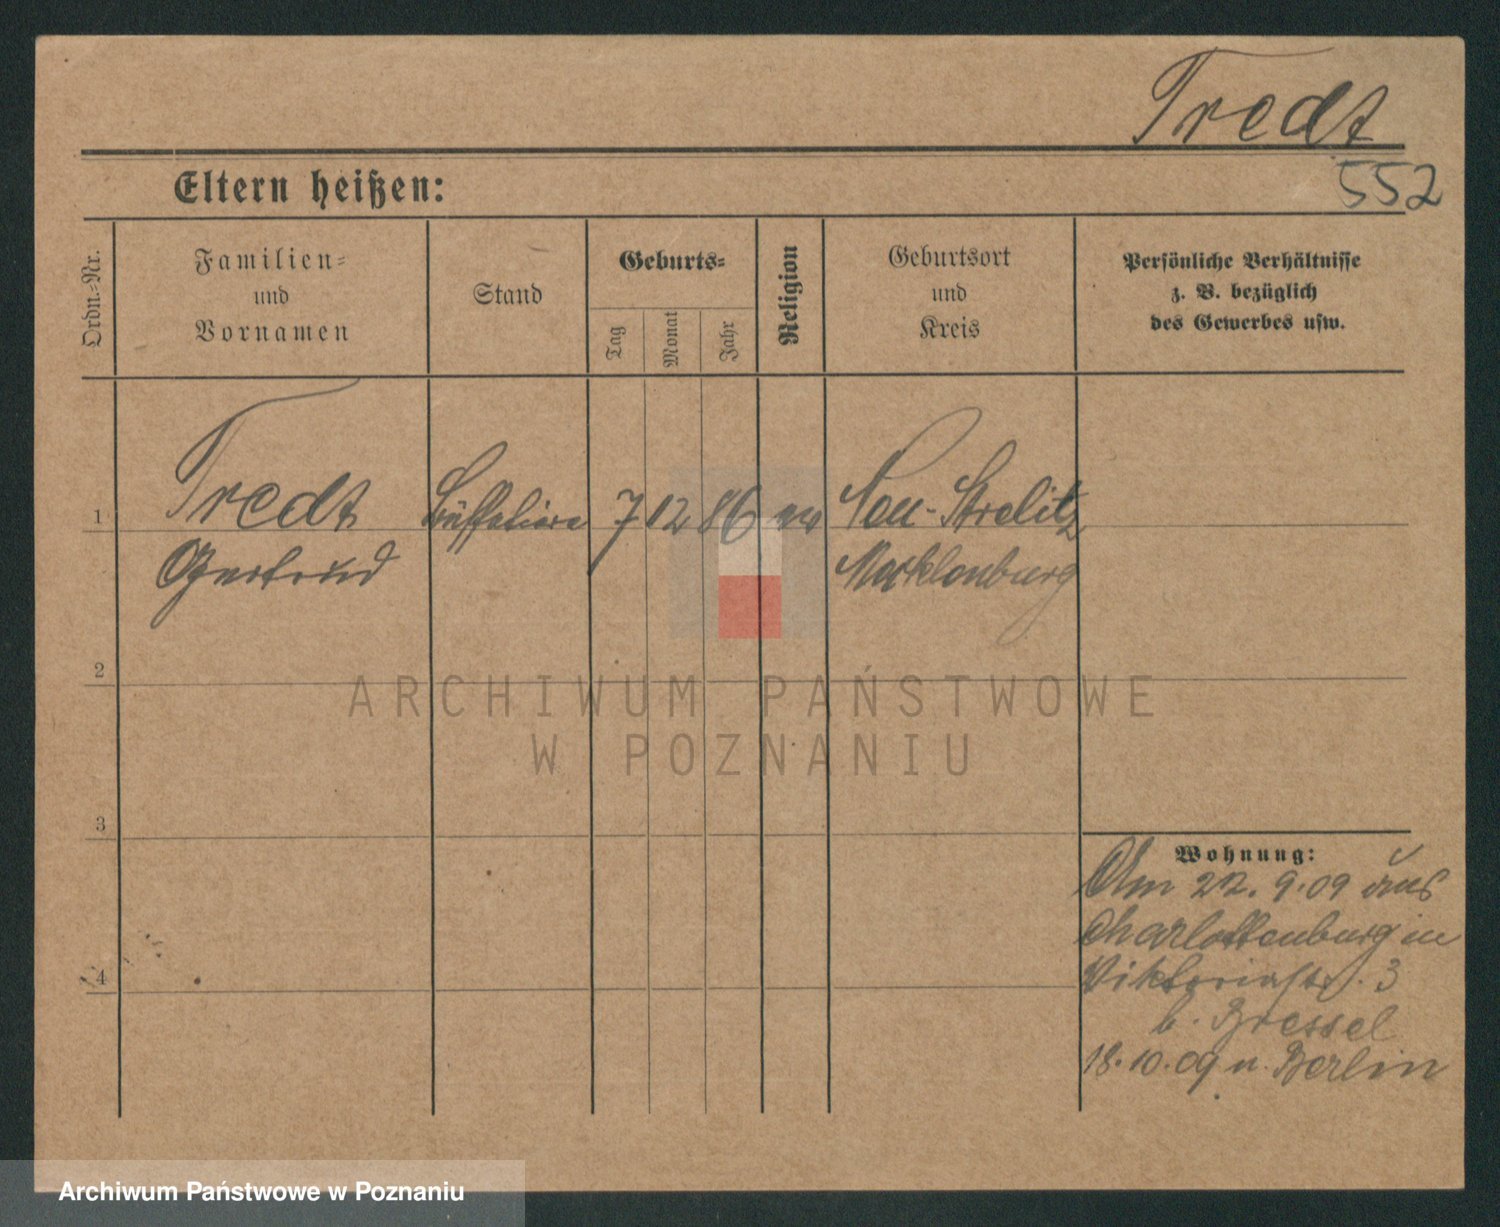 Tredt
552
Eltern heißen:
Ordn.-Nr.
Familien-
und
Vornamen
Stand
Geburts-
Tag
Monat
Jahr
Religion
Geburtsort
und
Kreis
Persönliche Verhältnisse
z. B. bezüglich
des Gewerbes usw.
1
Tredt
Gertrud
7
12
86
Neu-Strelitz
Mecklenburg
2
3
4
Wohnung:
Am 22. 9. 09 aus
Charlottenburg in
Viktoriastr. 3
b. Bressel
18. 10. 09 n. Berlin
ARCHIWUM PAŃSTWOWE
W POZNANIU
Archiwum Państwowe w Poznaniu